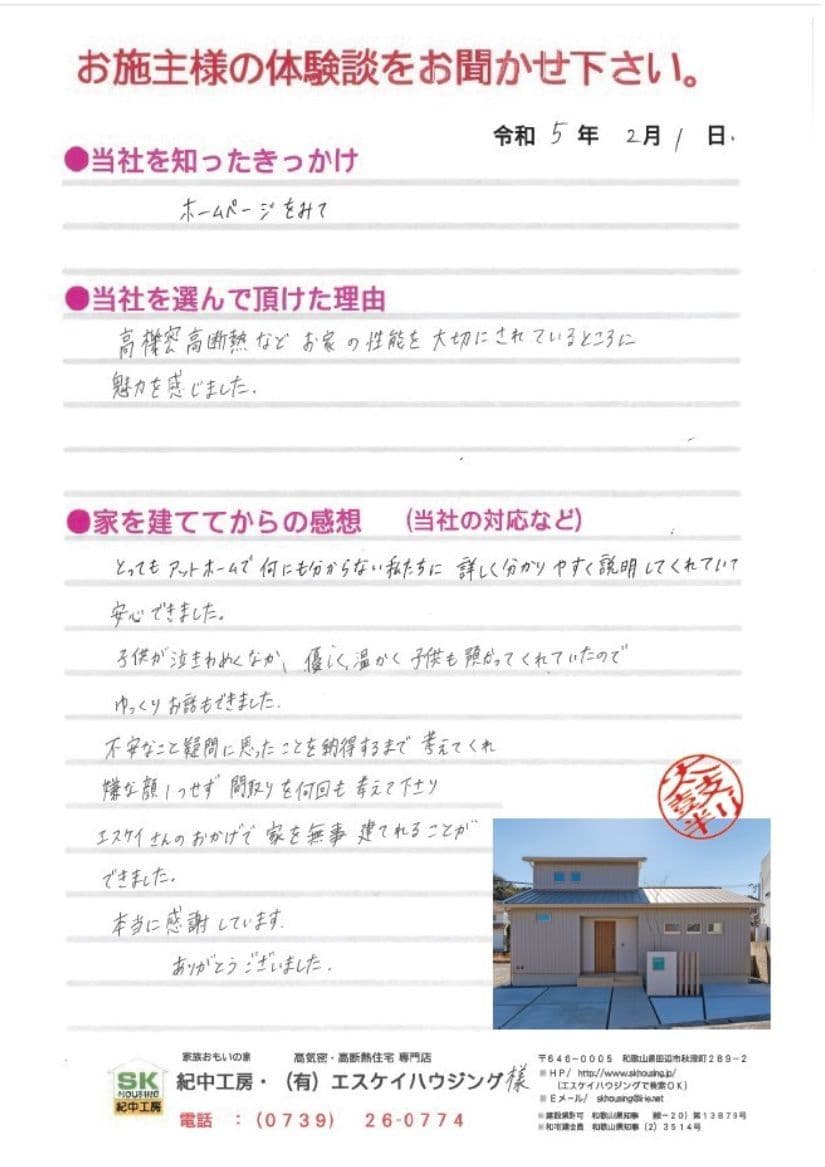 お施主様の体験談をお聞かせ下さい。
令和 5 年 2月 1 日.
●当社を知ったきっかけ
ホームページをみて
●当社を選んで頂けた理由
高機密高断熱など お家の性能を大切にされているところに
魅力を感じました.
●家を建ててからの感想 (当社の対応など)
とってもアットホームで何にも分からない私たちに 詳しく分かりやすく説明してくれていて
安心できました。
子供が泣きわめくなか、優しく、温かく子供も預かってくれていたので
ゆっくりお話もできました.
不安なこと疑問に思ったことを納得するまで 考えてくれ
嫌な顔1つせず 間取りを何回も考えて下さり
エスケイさんのおかげで 家を無事 建てれることが
できました.
本当に感謝しています.
ありがとうございました.
家族おもいの家 高気密・高断熱住宅 専門店
SK
HOUSING
紀中工房
紀中工房・(有)エスケイハウジング様
電話 :(0739) 26-0774
〒646-0005 和歌山県田辺市秋津町289-2
※HP/ http://www.skhousing.jp/
(エスケイハウジングで検索OK)
※Eメール/ skhousing@
※建設業許可 和歌山県知事 (般-20)第13879号
※和宅建会員 和歌山県知事(2)3514号